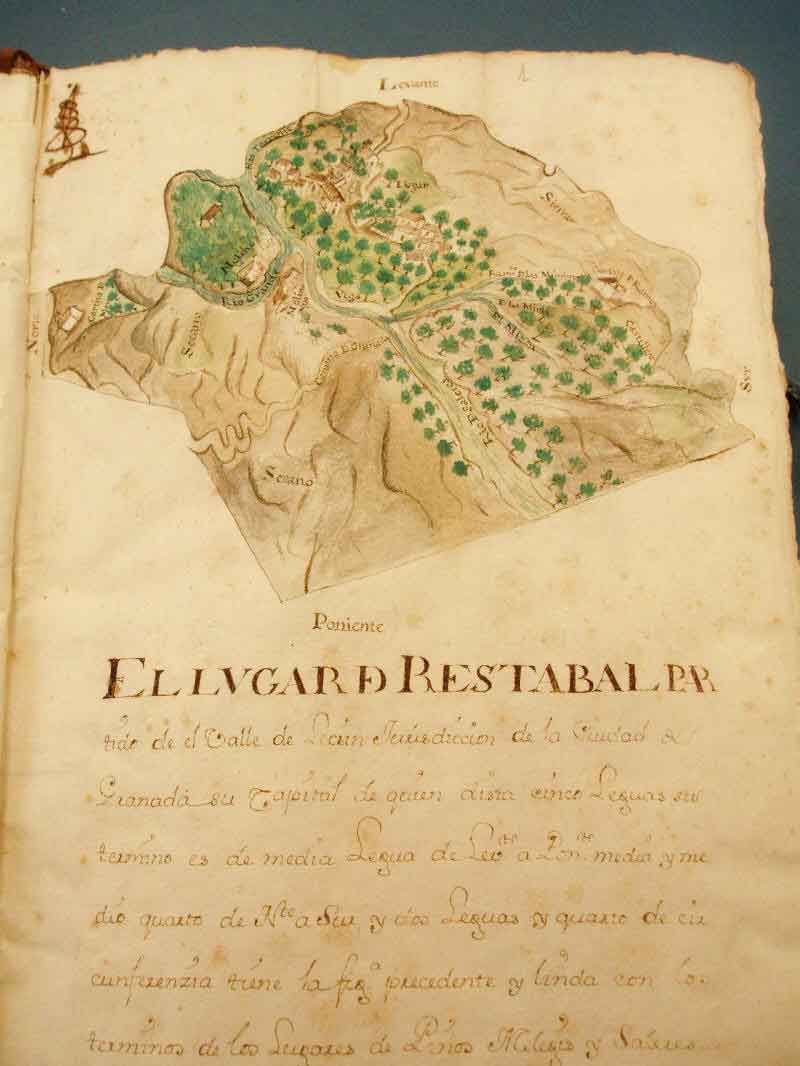 1
Levante
Lugar
Sierra
Molino
Rio Grande
Molino
Viejo
Secano
Norte
Sur
Camino D Granada
Secano
Poniente
EL LVGAR D RESTABAL PAR
tido de el Valle de Lecrin Jurisdiccion de la Ciudad d
Granada su Capital de quien dista cinco Leguas su
termino es de media Legua de Lev.te a Pon.te media y me
dio quarto de N.te a Sur y dos Leguas y quarto de cir
cunferenzia tiene la fig.a precedente y linda con los
terminos de los Lugares de Pinos Melejis y Saleres